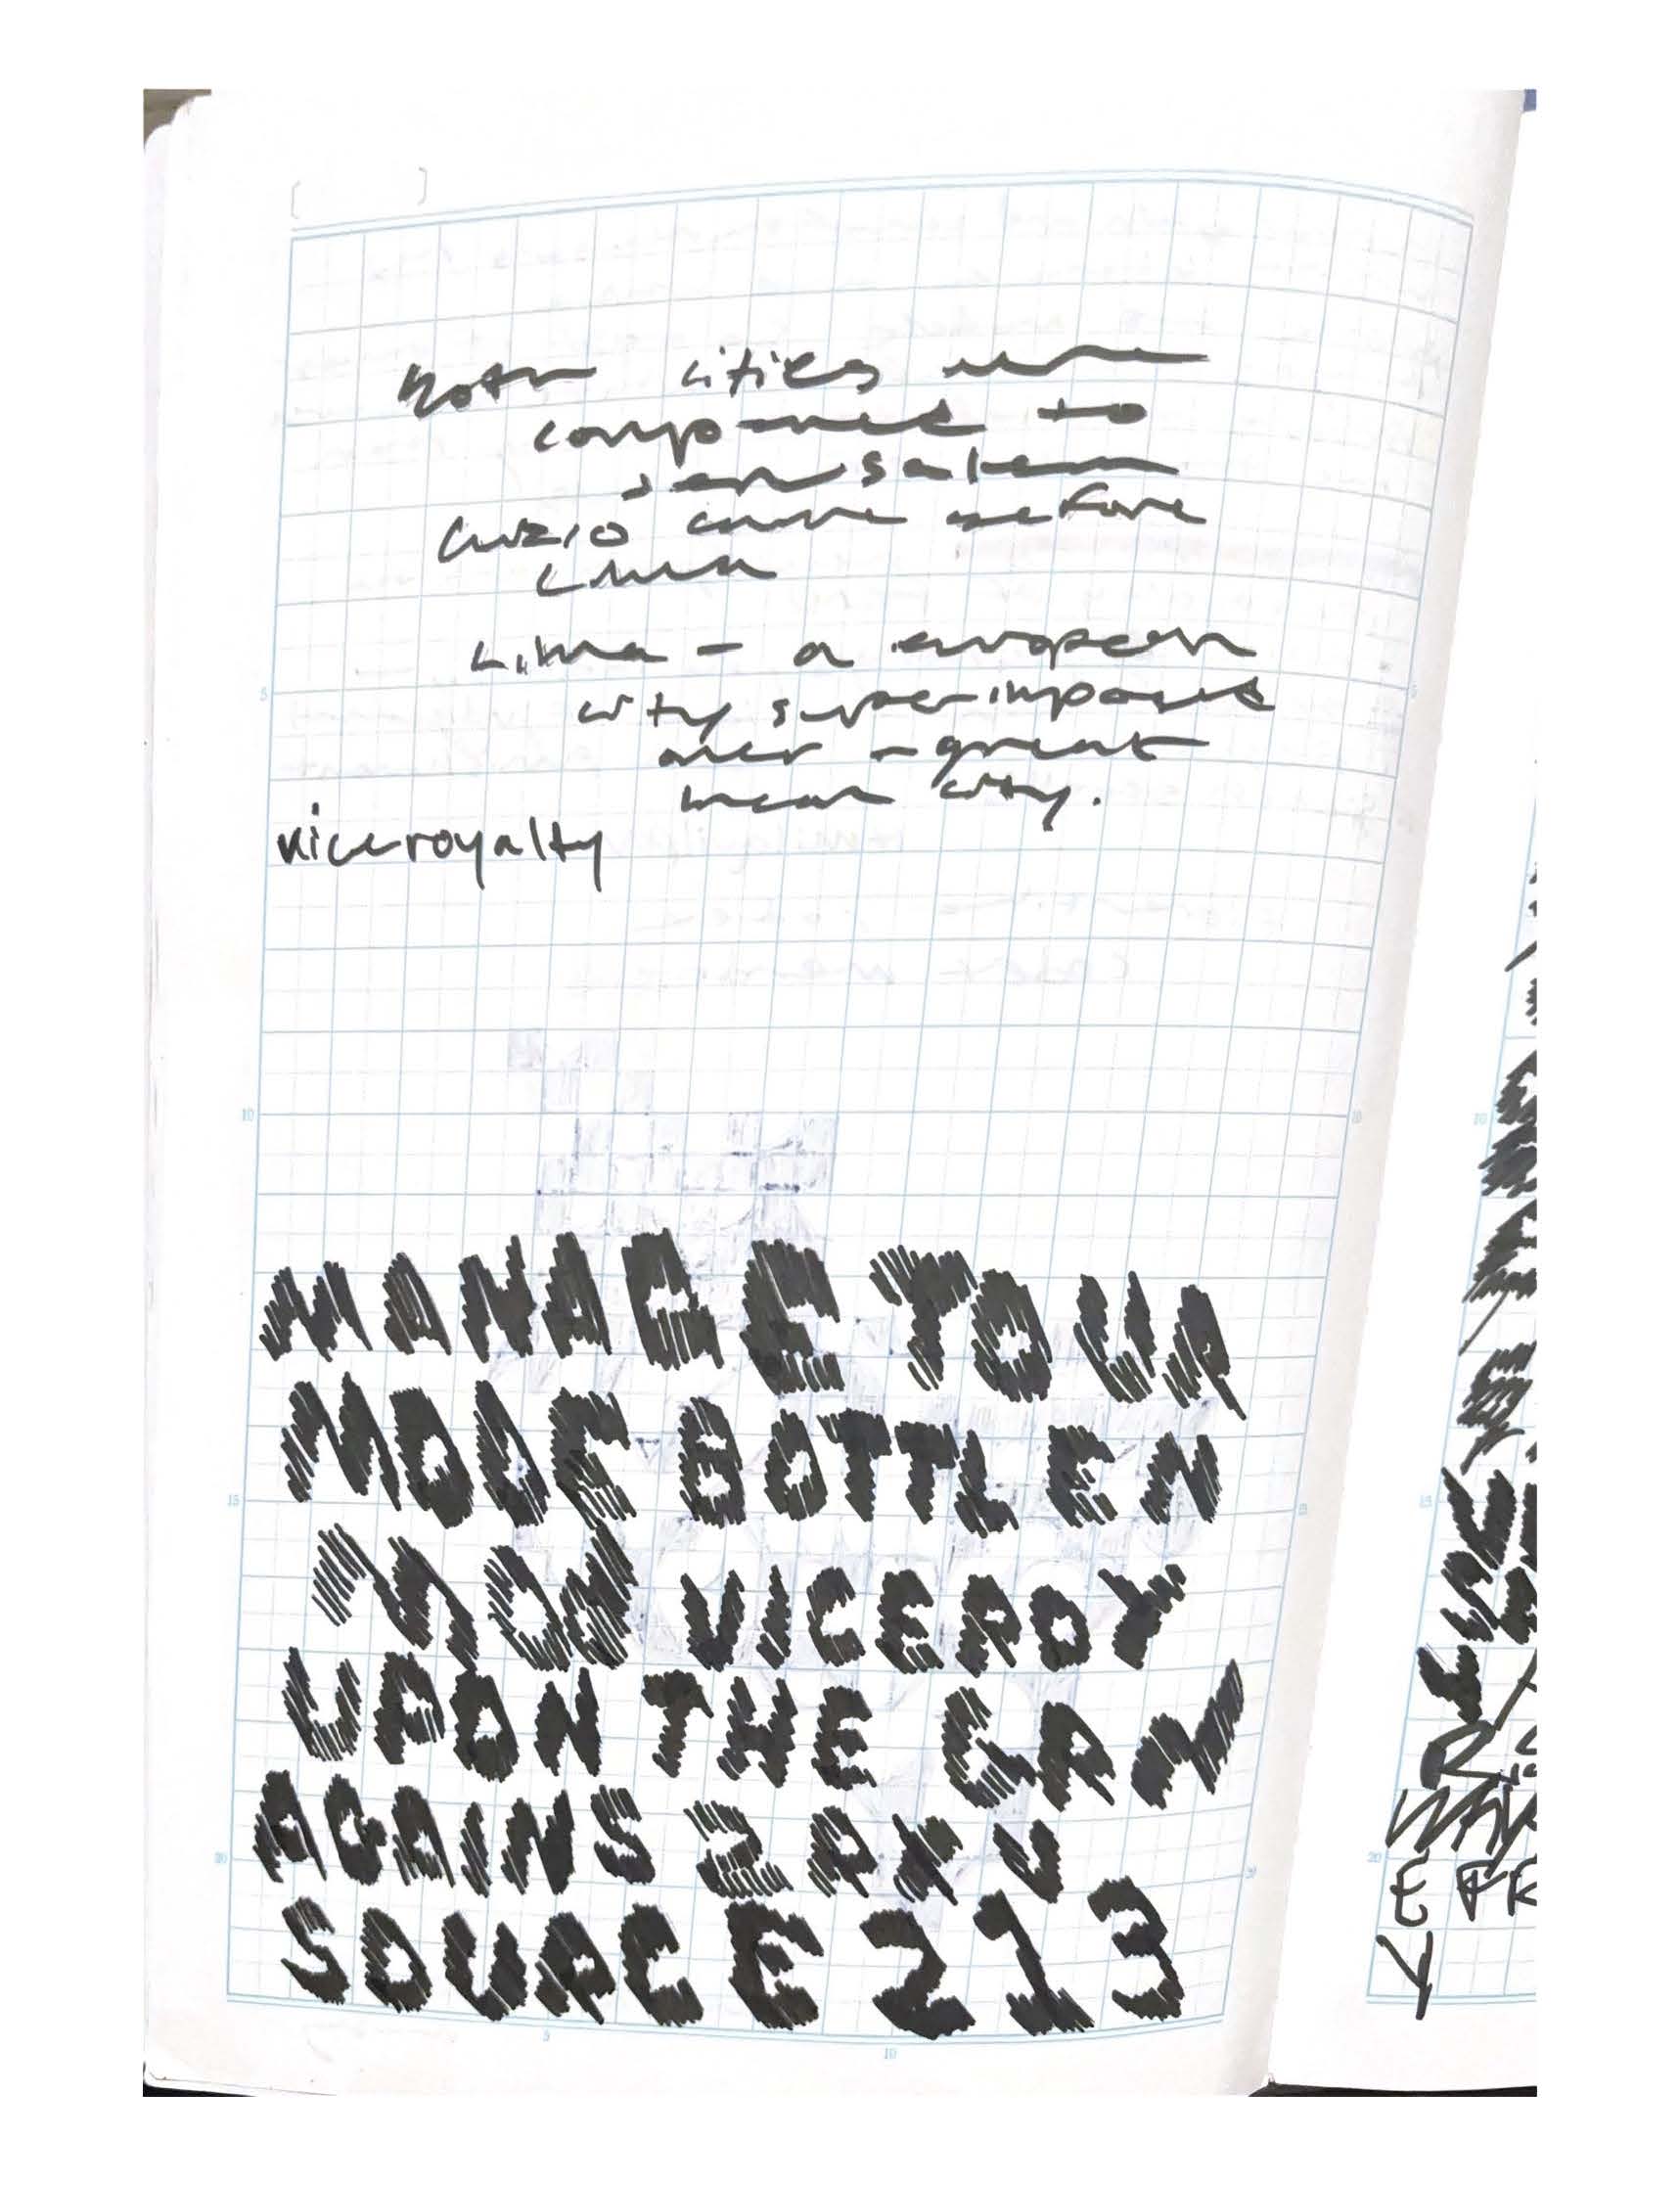 Both cities were
compared to
Jerusalem
Cuzco came before
Lima
Lima - a european
city superimposed
over a great
incan city.
viceroyalty
MANAGE TO UP
BOTTLEN
VICEROY
UPON THE GRAY
AGAINS
SOURCE 213